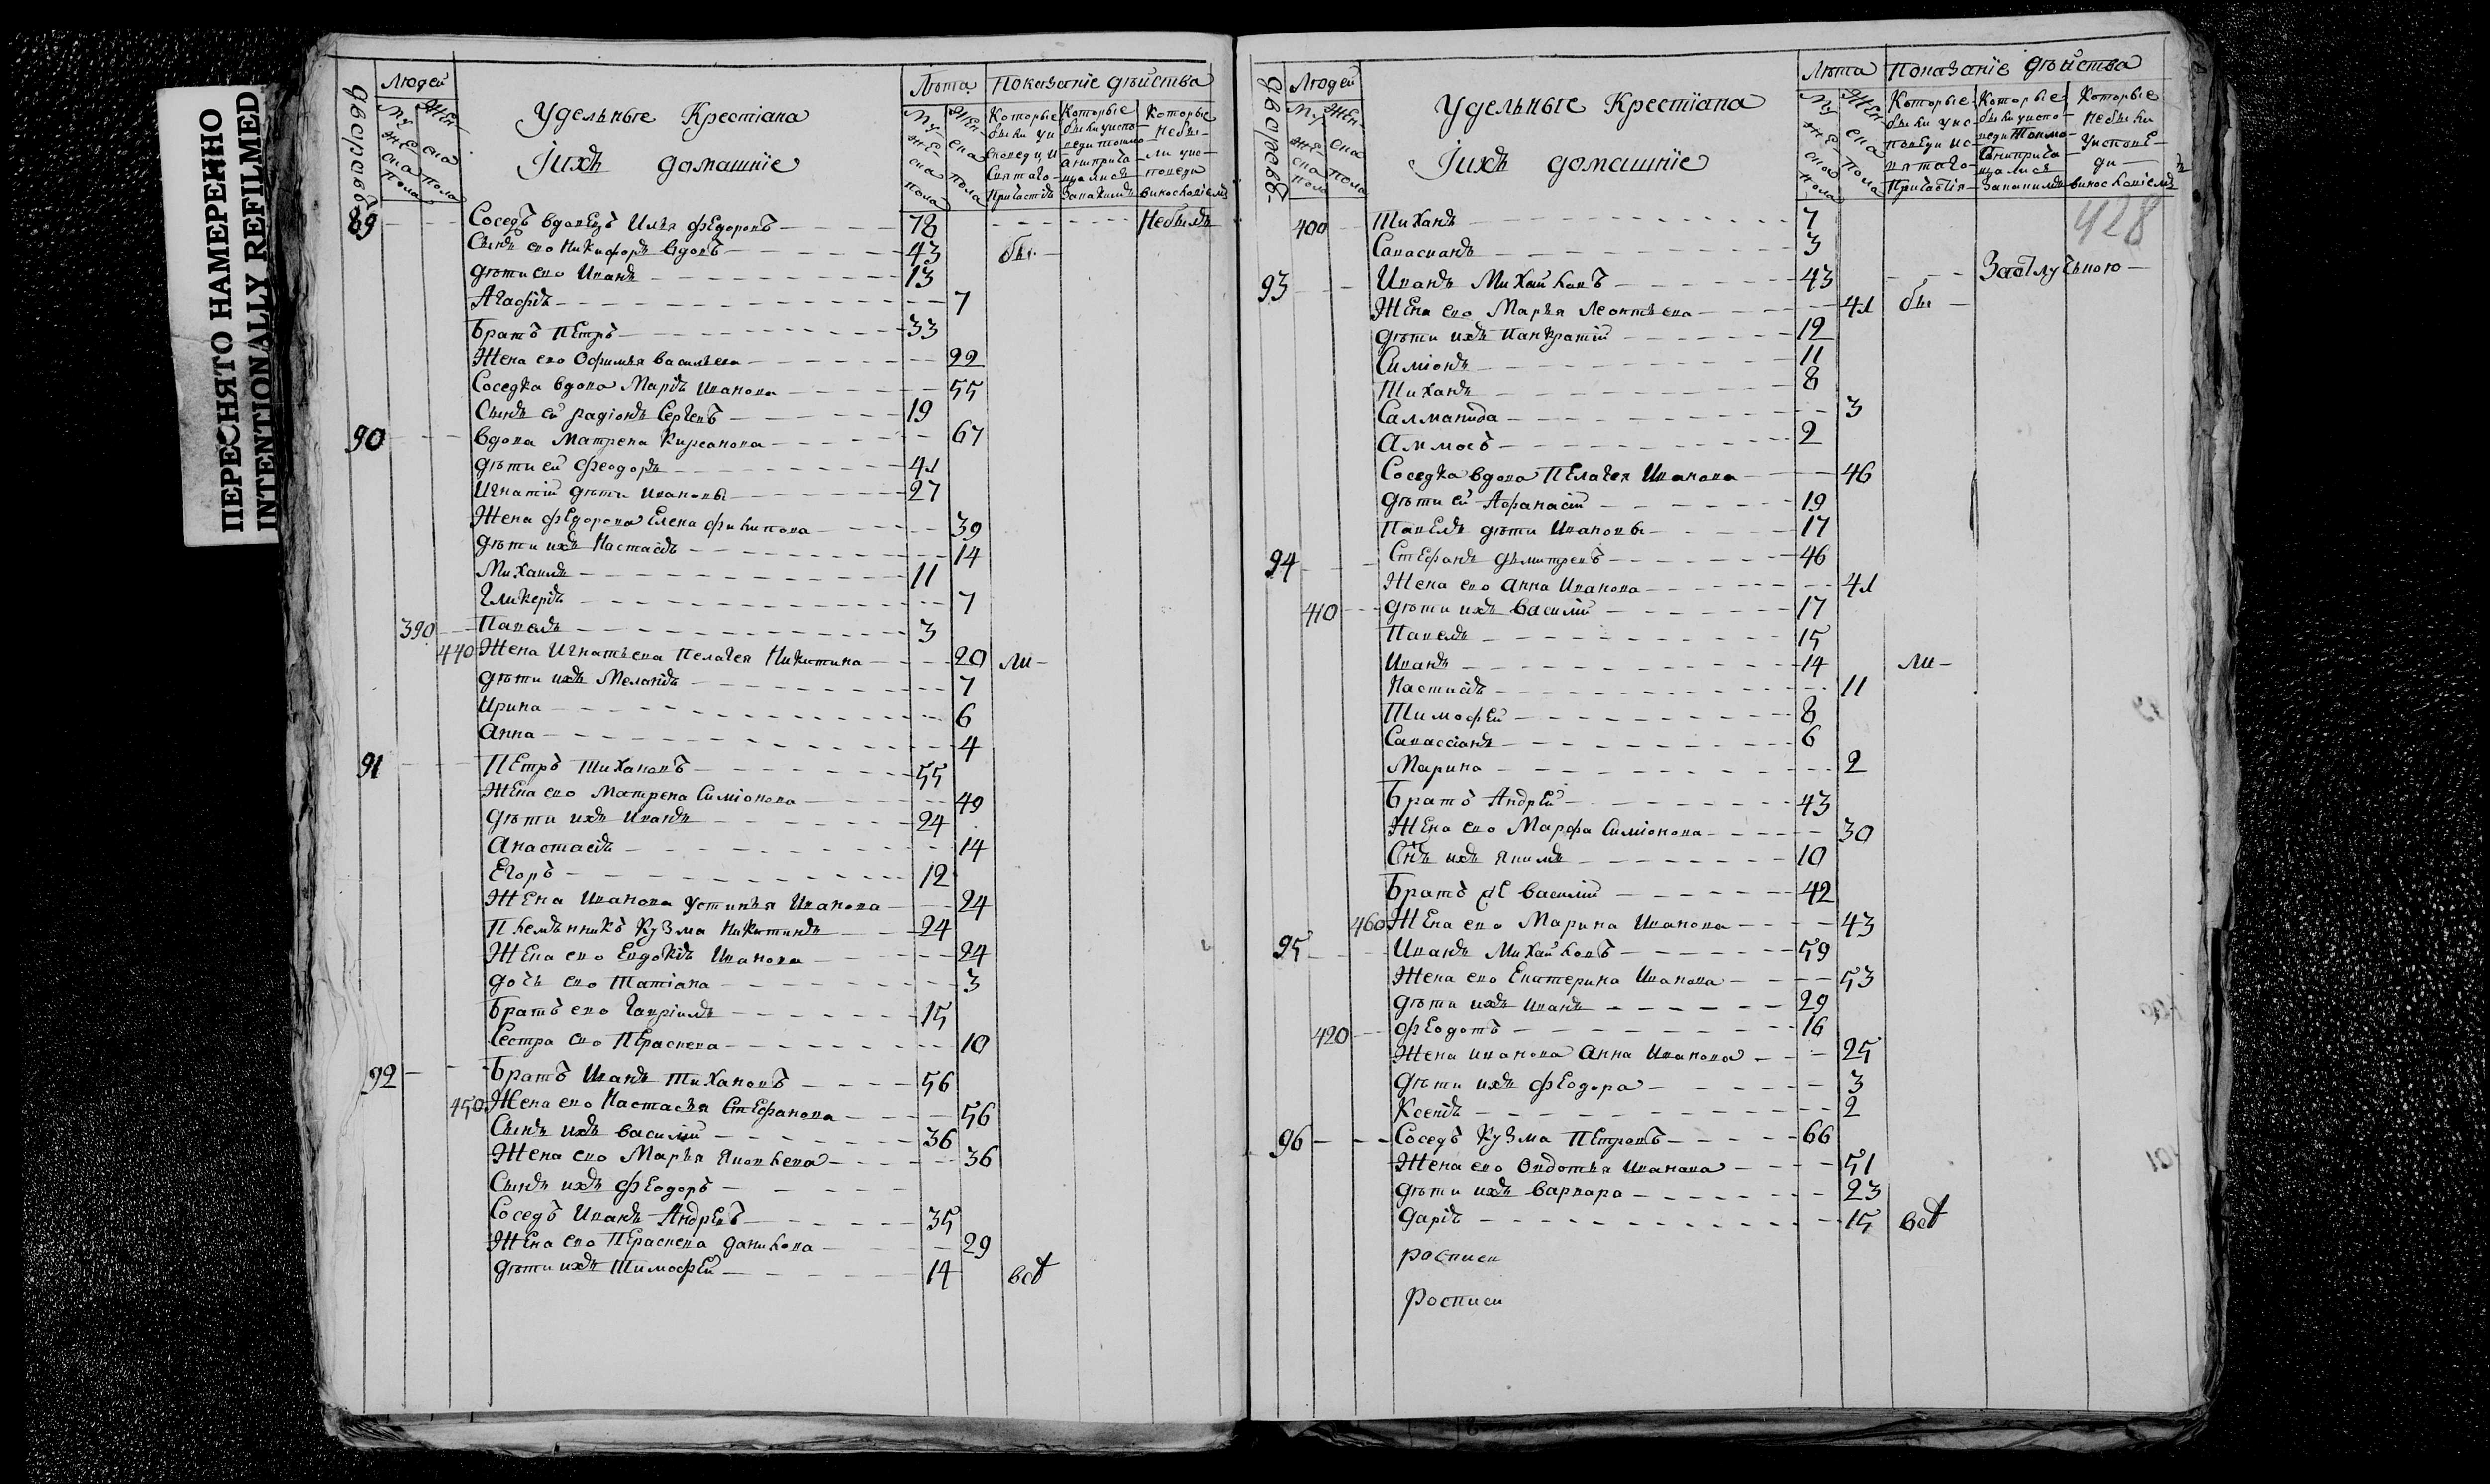 ПЕРЕСНЯТО НАМЕРЕННО
INTENTIONALLY REFILMED
дворовъ
Людей
Муже ска пола
Жен ска пола
Удельные Крестіана
Іихъ домашніе
Лѣта
Муже ска пола
Жен ска пола
Показаніе дѣйства
Которые были уисповеди и Святаго Причастія
Которые были уисповеди токмо а неприча щалися
Которые небыли уисповеди
89 Соседъ вдовецъ Илья Федоровъ 78 Небылъ
Сынъ ево Никифоръ вдовъ 43 бы
дѣти ево Иванъ 13
Агафія 7
Братъ Петръ 33
Жена ево Офимья васильева 22
Соседка вдова Марія Иванова 55
Сынъ ей Радіонъ Сергевъ 19
90 вдова Матрена Кирсанова 67
дѣти ей Феодоръ 41
Игнатій дѣти Ивановы 27
Жена Федорова Елена филипова 39
дѣти ихъ Настасія 14
Михаилъ 11
Гликерія 7
390 Павелъ 3
440 Жена Игнатьева Пелагея Никитина 20 ли
дѣти ихъ Меланія 7
Ирина 6
Анна 4
91 Петръ Тихановъ 55
Жена ево Матрена Симіонова 49
дѣти ихъ Иванъ 24
Анастасія 14
Егоръ 12
Жена Иванова Устинья Иванова 24
Племянникъ Кузма Никитинъ 24
Жена ево Евдокія Иванова 24
дочь ево Татіана 3
Братъ ево Гавріилъ 15
Сестра ево Пераскева 10
92 Братъ Иванъ Тихановъ 56
450 Жена ево Настасья Стефанова 56
Сынъ ихъ василій 36
Жена ево Марья Яковлева 36
Сынъ ихъ Феодоръ
Соседъ Иванъ Андревъ 35
Жена ево Пераскева данилова 29
дѣти ихъ Тимофей 14 всѣ
дворовъ
Людей
Муже ска пола
Жен ска пола
Удельные Крестіана
Іихъ домашніе
Лѣта
Муже ска пола
Жен ска пола
Показаніе дѣйства
Которые были уисповеди исвятаго Причастія
Которые были уисповеди токмо анеприча щалися
Которые небыли уисповеди
428
400 Тиханъ 7
Савасианъ 3
93 Иванъ Михайловъ 43
Жена ево Марья Леонтьева 41 бы
дѣти ихъ Панкратій 12
Симіонъ 11
Тиханъ 8
Саламанида 3
Аммосъ 2
Соседка вдова Пелагея Иванова 46
дѣти ей Афанасій 19
Павелъ дѣти Ивановы 17
94 Стефанъ дѣмитревъ 46
Жена ево Анна Иванова 41
410 дѣти ихъ василій 17
Павелъ 15
Иванъ 14 ли
Настасія 11
Тимофей 8
Савассіанъ 6
Марина 2
Братъ Андрей 43
Жена ево Марфа Симіонова 30
Снъ ихъ Якимъ 10
Братъ же василій 42
460 Жена ево Марина Иванова 43
95 Иванъ Михайловъ 59
Жена ево Екатерина Иванова 53
дѣти ихъ иванъ 29
420 Феодотъ 16
Жена иванова Анна Иванова 25
дѣти ихъ Феодора 3
Ксенія 2
96 Соседъ Кузма Петровъ 66
Жена ево Овдотья Иванова 51
дѣти ихъ варвара 23
дарія 15 всѣ
росписи
Росписи